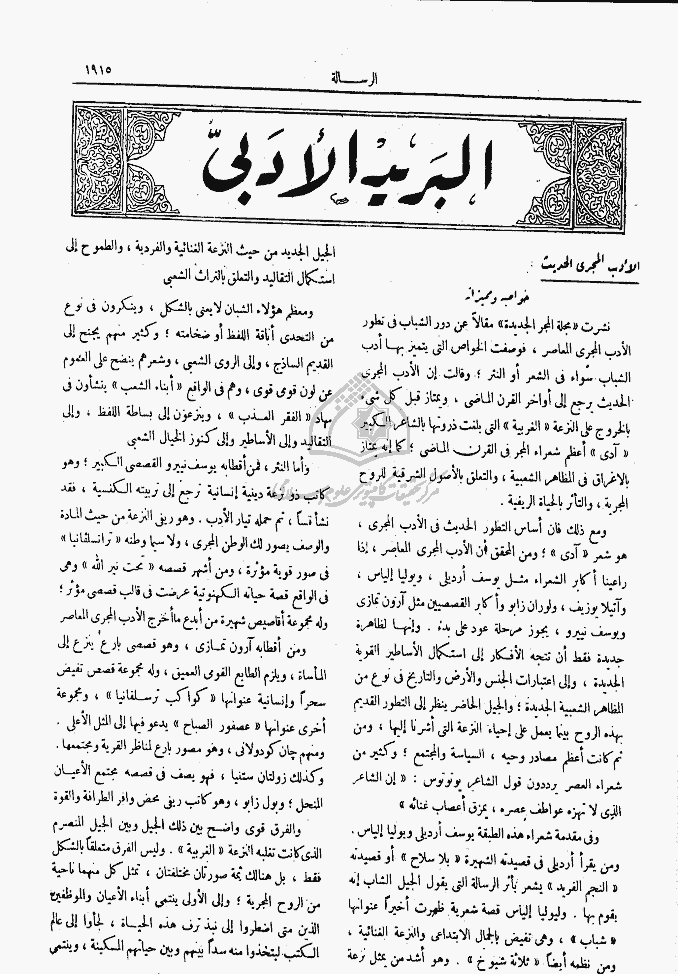 الرسالة
١٩١٥
البريد الأدبي
الأدب المجري الحديث
خواصه ومميزاته
نشرت «مجلة المجر الجديدة» مقالاً عن دور الشباب فى تطور
الأدب المجرى المعاصر ، فوصفت الخواص التى يتميز بهـا أدب
الشباب سواء فى الشعر أو النثر ؛ وقالت إن الأدب المجرى
الحديث يرجع إلى أواخر القرن الماضى ، ويمتاز قبل كل شىء
بالخروج على النزعة «الغربية» التى بلغت ذروتها بالشاعر الكبير
« آدى » أعظم شعراء المجر فى القرن الماضى ؛ كما إنه يمتاز
بالاغراق فى المظاهر الشعبية ، والتعلق بالأصول الشرقية للروح
المجرية ، والتأثر بالحياة الريفية .
ومع ذلك فان أساس التطور الحديث فى الأدب المجرى ،
هو شعر « آدى » ؛ ومن المحقق أن الأدب المجرى المعاصر ، إذا
راعينا أكابر الشعراء مثـل يوسف أرديلى ، وبوليا إلياس ،
وآتيلا يوزيف ، ولوران زابو وأكابر القصصيين مثل آرون تمازى
ويوسف نييرو ، يجوز مرحلة عود على بدء . وإنهـا لظاهرة
جديدة فقط أن تتجه الأفكار إلى استكمال الأساطير القوية
الجديدة ، وإلى اعتبارات الجنس والأرض والتاريخ فى نوع من
المظاهر الشعبية الجديدة ؛ والجيل الحاضر ينظر إلى التطور القديم
بهذه الروح بينما يعمل على إحياء النزعة التى أشرنا إليها ، ومن
ثم كانت أعظم مصادر وحيه ، السياسة والمجتمع ؛ وكثير من
شعراء العصر يرددون قول الشاعر : « إن الشاعر
الذى لا تهزه عواطف عصره ، يمزق أعصاب غنائه »
وفى مقدمة شعراء هذه الطبقة يوسف أرديلى وبوليا إلياس .
ومن يقرأ أرديلى فى قصيدته الشهيرة « بلا سلاح » أو قصيدته
« النجم الفريد » يشعر بتأثر الرسالة التى يقول الجيل الشاب إنه
يقوم بها . وليوليا إلياس قصة شعرية ظهرت أخيراً عنوانها
« شباب » ، وهى تفيض بالجمال الابتداعى والنزعة الغنائية ،
ومن نظمه أيضاً « ثلاثة شيوخ » . وهو أشد من يمثل نزعة
الجيل الجديد من حيث النزعة الغنائية والفردية ، والطموح إلى
استكمال التقاليد والتعلق بالتراث الشعبى
ومعظم هؤلاء الشبان لا يعنى بالشكل ، وينكرون فى نوع
من التحدى أناقة اللفظ أو ضخامته ؛ وكثير منهم يجنح إلى
القديم الساذج ، وإلى الروى الشعبى ، وشعرهم ينضح على العموم
عن لون قومى قوى ، وهم فى الواقع « أبناء الشعب » ينشأون فى
مهاد «الفقر العـذب» ، وينزعون إلى بساطة اللفظ ، وإلى
التقاليد وإلى الأساطير وإلى كنوز الخيال الشعبى
وأما النثر ، فمن أقطابه يوسف نييرو القصصى الكبير ؛ وهو
كاتب ذو نزعة دينية إنسانية ترجع إلى تربيته الكنسية ، فقد
نشأ قساً ، ثم حمله تيار الأدب . وهو ريفى النزعة من حيث المادة
والوصف يصور لك الوطن المجرى ، ولا سيما وطنه « ترانسلفانيا »
فى صور قوية مؤثرة ، ومن أشهر قصصه « تحت نير الله » وهى
فى الواقع قصة حياته الكهنوتية عرضت فى قالب قصصى مؤثر ؛
وله مجموعة أقاصيص شهيرة من أبدع ما أخرج الأدب المجرى المعاصر
ومن أقطابه آرون تمـازى ، وهو قصصى بارع ينزع إلى
المأساة ، ويلزم الطابع القومى العميق ، وله مجموعة قصص تفيض
سحراً وإنسانية عنوانها « كواكب ترسلفانيا » ، ومجموعة
أخرى عنوانها « عصفور الصباح » يدعو فيها إلى المثل الأعلى .
ومنهم چان كودولانى ، وهو مصور بارع لمناظر القرية ومجتمعها .
وكذلك زولتان ستنيا ، فهو يصف فى قصصه مجتمع الأعيـان
المنحل ؛ وبول زابو ، وهو كاتب ريفى محض وافر الطرافة والقوة
والفرق قوى واضح بين ذلك الجيل وبين الجيل المنصرم
الذى كانت تغلبه النزعة « الغربية » . وليس الفرق متعلقاً بالشكل
فقط ، بل هنالك ثمة صورتان مختلفتان ، تمثل كل منهما ناحية
من الروح المجرية ؛ وإلى الأولى ينتمى أبناء الأعيان والموظفين
الذين متى اضطروا إلى نبذ ترف هذه الحيـاة ، لجأوا إلى عالم
الكتب ليتخذوا منه سداً بينهم وبين حياتهم المسكينة ، وينتمى